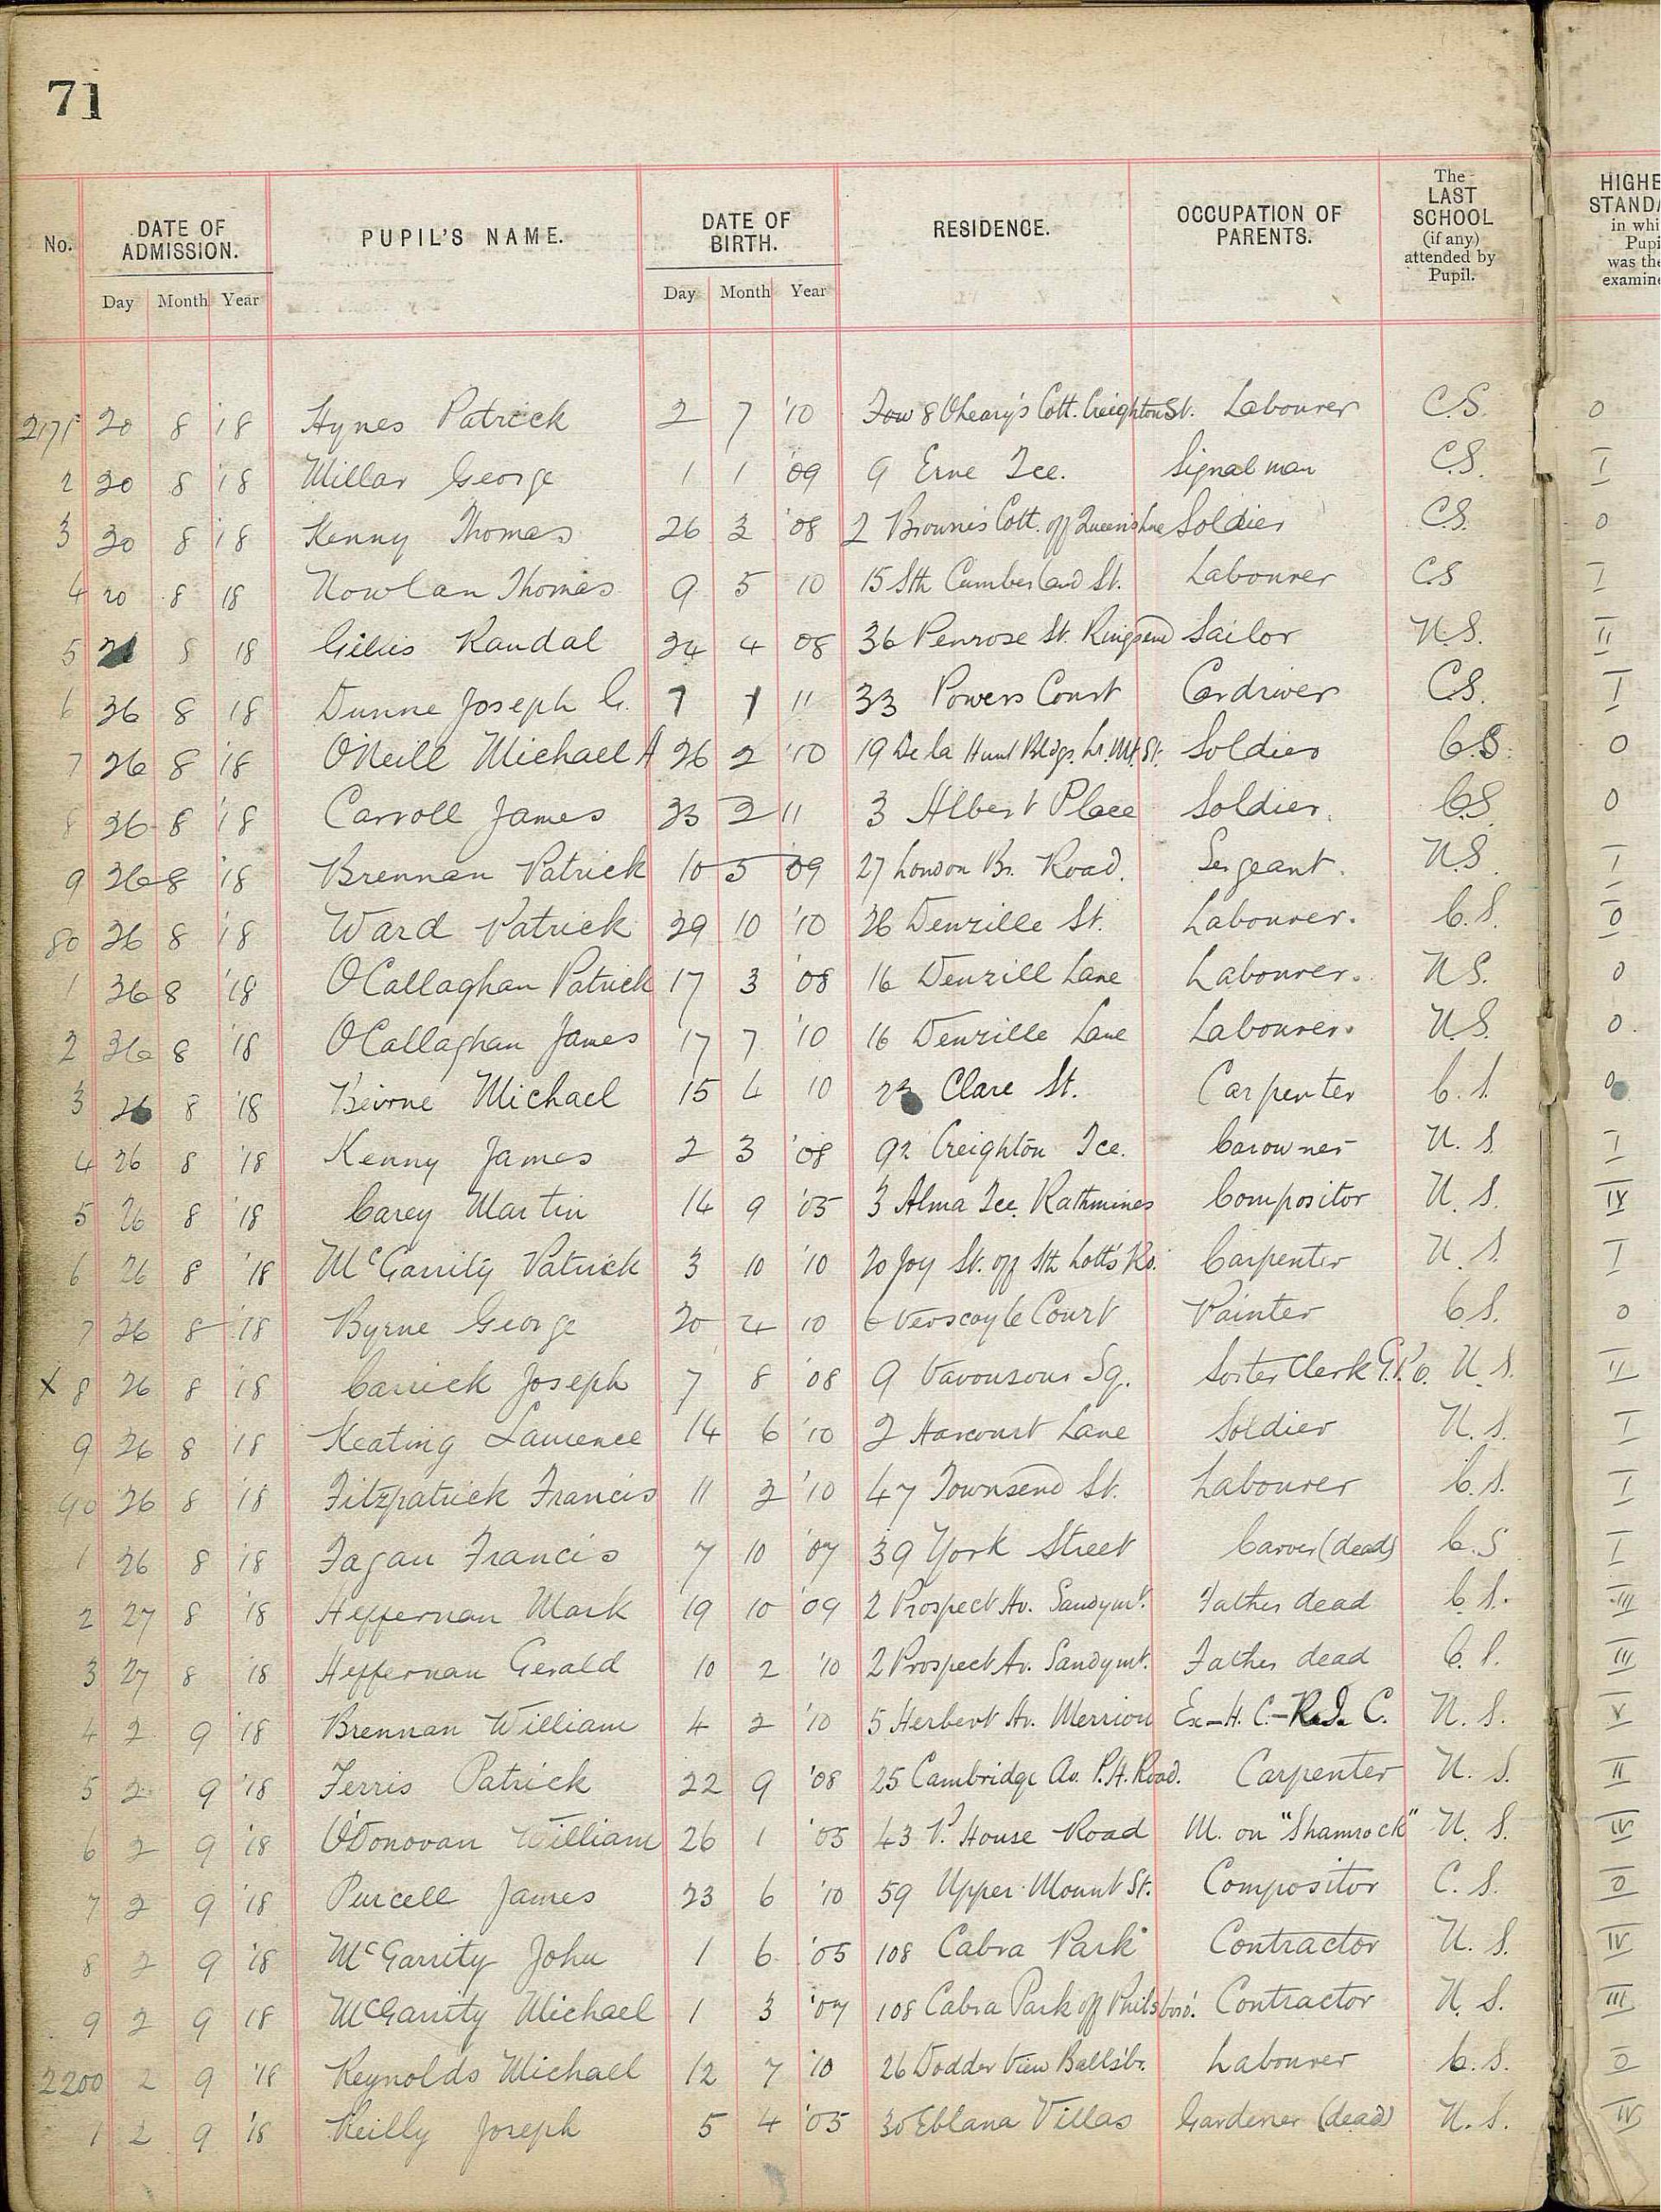 71
No. DATE OF ADMISSION. PUPIL'S NAME. DATE OF BIRTH. RESIDENCE. OCCUPATION OF PARENTS. The LAST SCHOOL (if any) attended by Pupil. HIGHE STANDA in whi Pupi was the examine
Day Month Year Day Month Year
2171 20 8 '18 Hynes Patrick 2 7 '10 8 OLeary's Cott. Creighton St. Labourer C.S. 0
2 20 8 '18 Millar George 1 1 '09 9 Erne Tce. Signalman C.S. I
3 20 8 '18 Kenny Thomas 26 2 '08 2 Browne's Cott. off Queen's Lane Soldier C.S. 0
4 20 8 18 Nowlan Thomas 9 5 10 15 Sth Cumberland St. Labourer C.S I
5 21 8 18 Gillis Randal 24 4 08 36 Penrose St. Ringsend Sailor N.S. II
6 26 8 18 Dunne Joseph G. 7 1 11 33 Powers Court Cardriver C.S. I
7 26 8 '18 O'Neill Michael A 26 2 '10 19 De la Hunt Bldgs. Lr. Mt. St. Soldier C.S. 0
8 26 8 '18 Carroll James 23 2 11 3 Albert Place Soldier. C.S. 0
9 26 8 '18 Brennan Patrick 10 5 '09 27 London Br. Road. Sergeant. N.S I
80 26 8 '18 Ward Patrick 29 10 '10 26 Denzille St. Labourer. C.S. 0
1 26 8 '18 O'Callaghan Patrick 17 3 '08 16 Denzill Lane Labourer. N S. 0
2 26 8 '18 O'Callaghan James 17 7 '10 16 Denzille Lane Labourer. N.S. 0.
3 26 8 '18 Beirne Michael 15 4 10 23 Clare St. Carpenter C.S. 0
4 26 8 '18 Kenny James 2 3 '08 92 Creighton Tce. Carowner N.S. I
5 26 8 '18 Carey Martin 14 9 '05 3 Alma Tce. Rathmines Compositor N.S. IV
6 26 8 '18 McGarrity Patrick 3 10 '10 20 Joy St. off Sth Lott's Rd. Carpenter N.S. I
7 26 8 '18 Byrne George 20 4 10 6 Verscoyle Court Painter C.S. 0
X 8 26 8 '18 Carrick Joseph 7 8 '08 9 Davonsons Sq. Sorter Clerk G.P.O. N.S. II
9 26 8 '18 Keating Laurence 14 6 '10 2 Harcourt Lane Soldier N.S. I
90 26 8 '18 Fitzpatrick Francis 11 2 '10 47 Townsend St. Labourer C.S. I
1 26 8 '18 Fagan Francis 7 10 '07 39 York Street Carver (dead) C.S I
2 27 8 '18 Heffernan Mark 19 10 '09 2 Prospect Av. Sandymt. Father dead C.S. III
3 27 8 '18 Heffernan Gerald 10 2 '10 2 Prospect Av. Sandymt. Father dead C.S. III
4 2 9 '18 Brennan William 4 2 '10 5 Herbert Av. Merrion Ex-H.C.-R.I.C. N.S. V
5 2 9 '18 Ferris Patrick 22 9 '08 25 Cambridge Av. P.H. Road. Carpenter N.S. II
6 2 9 '18 O'Donovan William 26 1 '05 43 P. House Road M. on "Shamrock" N.S. IV
7 2 9 '18 Purcell James 23 6 '10 59 Upper Mount St. Compositor C.S. 0
8 2 9 '18 McGarrity John 1 6 '05 108 Cabra Park Contractor N.S. IV
9 2 9 18 McGarrity Michael 1 3 '07 108 Cabra Park off Philsboro'. Contractor N.S. III
2200 2 9 '18 Reynolds Michael 12 7 '10 26 Dodder View Ballsbr. Labourer C.S. 0
1 2 9 '18 Reilly Joseph 5 4 '05 30 Eblana Villas Gardener (dead) N.S. IV